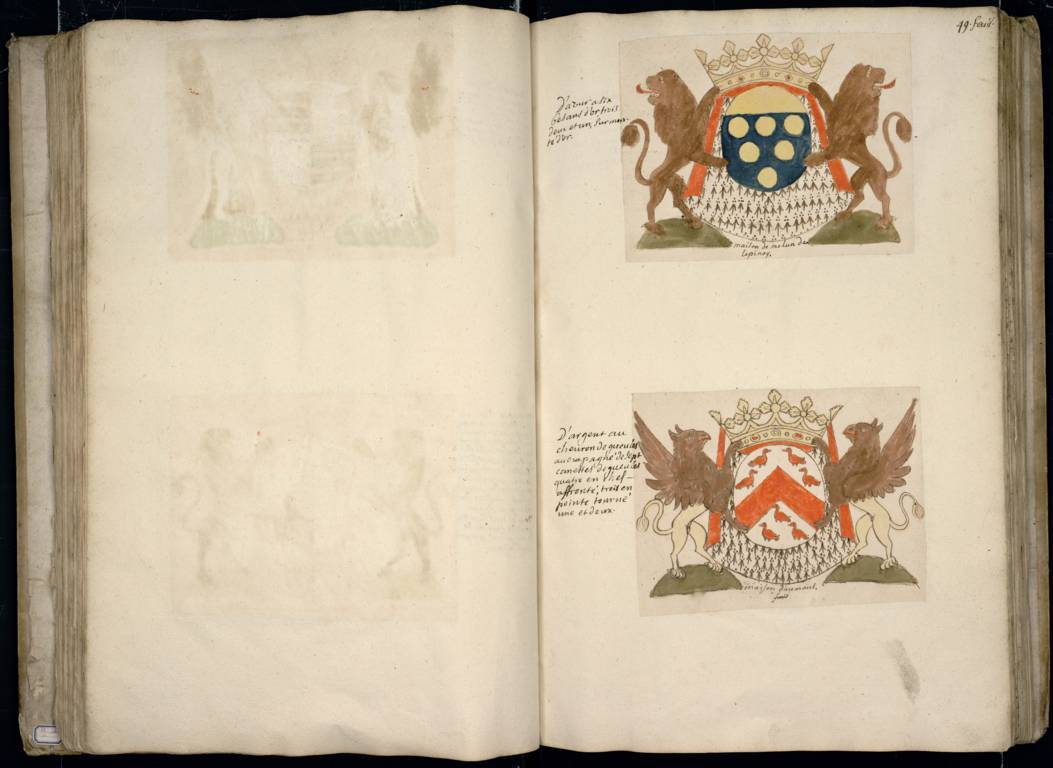 49. feuil.
D'azur a six
besans d'or trois
deux et un, surmon-
té d'or.
maison de melun de
lepinoy.
D'argent au
cheuron de gueules
accompagné de sept
canettes de gueules
quatre en Chef
affronté, trois en
pointe tourné
une et deux.
maison daumont,